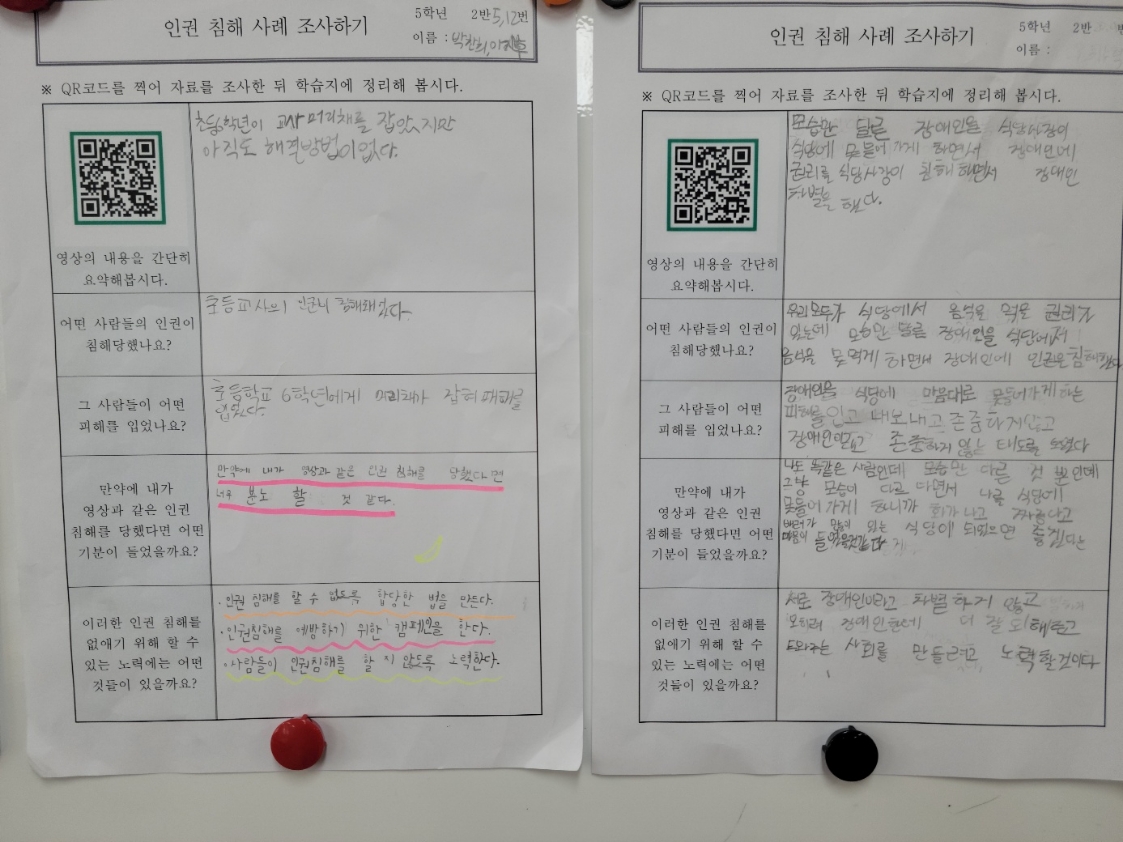 인권 침해 사례 조사하기
5학년 2반 5,12번
이름 : 박찬희,
※ QR코드를 찍어 자료를 조사한 뒤 학습지에 정리해 봅시다.
초등6학년이 교사 머리채를 잡았지만
아직도 해결방법이 없다.
영상의 내용을 간단히
요약해봅시다.
어떤 사람들의 인권이
침해당했나요?
초등교사의 인권이 침해돼었다.
그 사람들이 어떤
피해를 입었나요?
초등학교 6학년에게 머리채가 잡혀 피해를
입었다.
만약에 내가
영상과 같은 인권
침해를 당했다면 어떤
기분이 들었을까요?
만약에 내가 영상과 같은 인권 침해를 당했다면
너무 분노 할 것 같다.
이러한 인권 침해를
없애기 위해 할 수
있는 노력에는 어떤
것들이 있을까요?
·인권 침해를 할 수 없도록 합당한 법을 만든다.
·인권침해를 예방하기 위한 캠페인을 한다.
·사람들이 인권침해를 할 지 않도록 노력한다.
인권 침해 사례 조사하기
5학년 2반
이름 :
※ QR코드를 찍어 자료를 조사한 뒤 학습지에 정리해 봅시다.
모습만 다른 장애인을 식당사장이
식당에 못들어가게 하면서 장애인에
권리를 식당사장이 침해하면서 장애인
차별을 했다.
영상의 내용을 간단히
요약해봅시다.
어떤 사람들의 인권이
침해당했나요?
우리모두가 식당에서 음식을 먹을 권리가
있는데 모습만 다른 장애인을 식당에서
음식을 못먹게 하면서 장애인에 인권은 침해했다
그 사람들이 어떤
피해를 입었나요?
장애인을 식당에 마음대로 못들어가게하는
피해를 입고 내보내고 존중하지않고
장애인이라고 존중하지 않는 태도를
만약에 내가
영상과 같은 인권
침해를 당했다면 어떤
기분이 들었을까요?
나도 똑같은 사람인데 모습만 다른 것 뿐인데
그냥 모습이 다르다면서 나를 식당에
못들어 가게 하니까 화가나고 짜증나고
배려가 많이 있는 식당이 되있으면 좋겠다는
마음이
이러한 인권 침해를
없애기 위해 할 수
있는 노력에는 어떤
것들이 있을까요?
서로 장애인이라고 차별하지 않고
오히려 장애인한테 더 잘 이해하고
도와주는 사회를 만들려고 노력할것이다